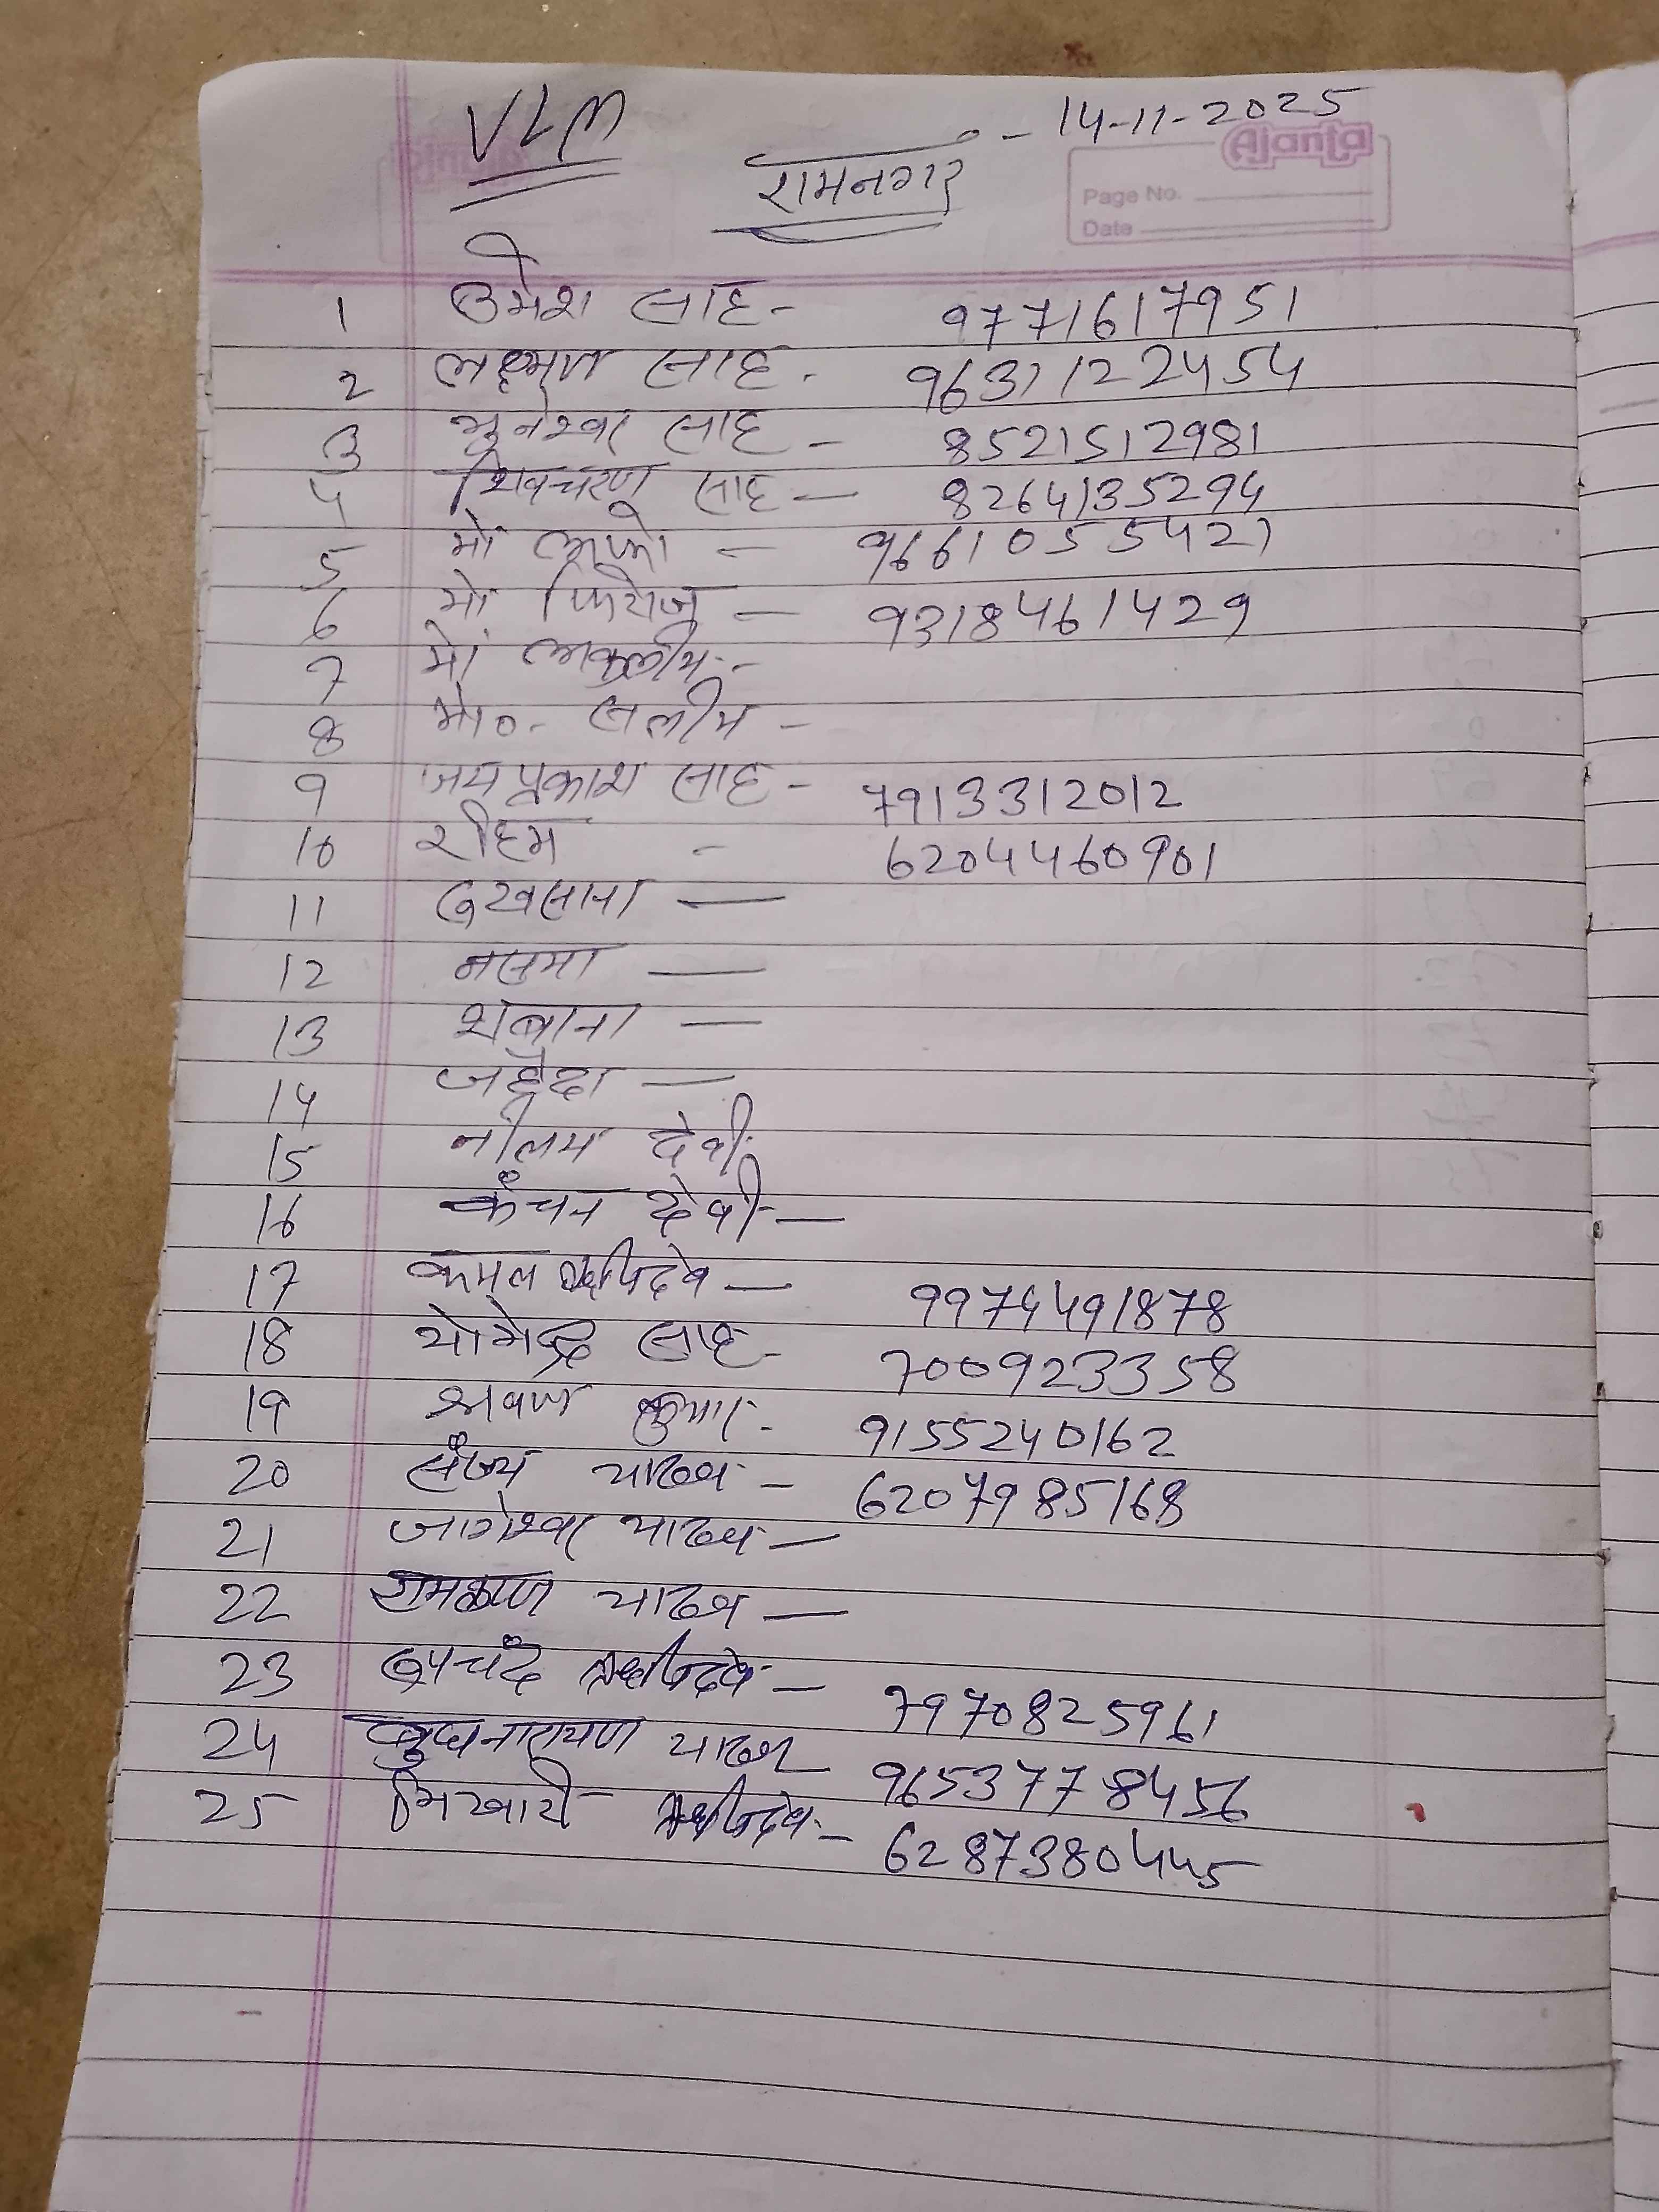 VLM
रामनगर - 14-11-2025
Ajanta
Page No.
Date
1 उमेश साह - 9771617951
2 लक्ष्मण साह - 9631122454
3 भुनेश्वर साह - 8521512981
4 शिवचरण साह - 8264135294
5 मो 9661055421
6 मो फिरोज - 9318461429
7 मो -
8 मो० - सलीम -
9 जय प्रकाश साह - 7913312012
10 रहिम - 6204460901
11 —
12 नसमा —
13 शबाना —
14 —
15 नीलम देवी
16 कंचन देवी —
17 कमल — 9974491878
18 योगेन्द्र साह - 7009923358
19 श्रवण कुमार - 9155240162
20 संजय यादव - 6207985168
21 जागेश्वर यादव —
22 यादव —
23 — 7970825961
24 बुधनारायण यादव 9653778456
25 भिखारी — 6287380445